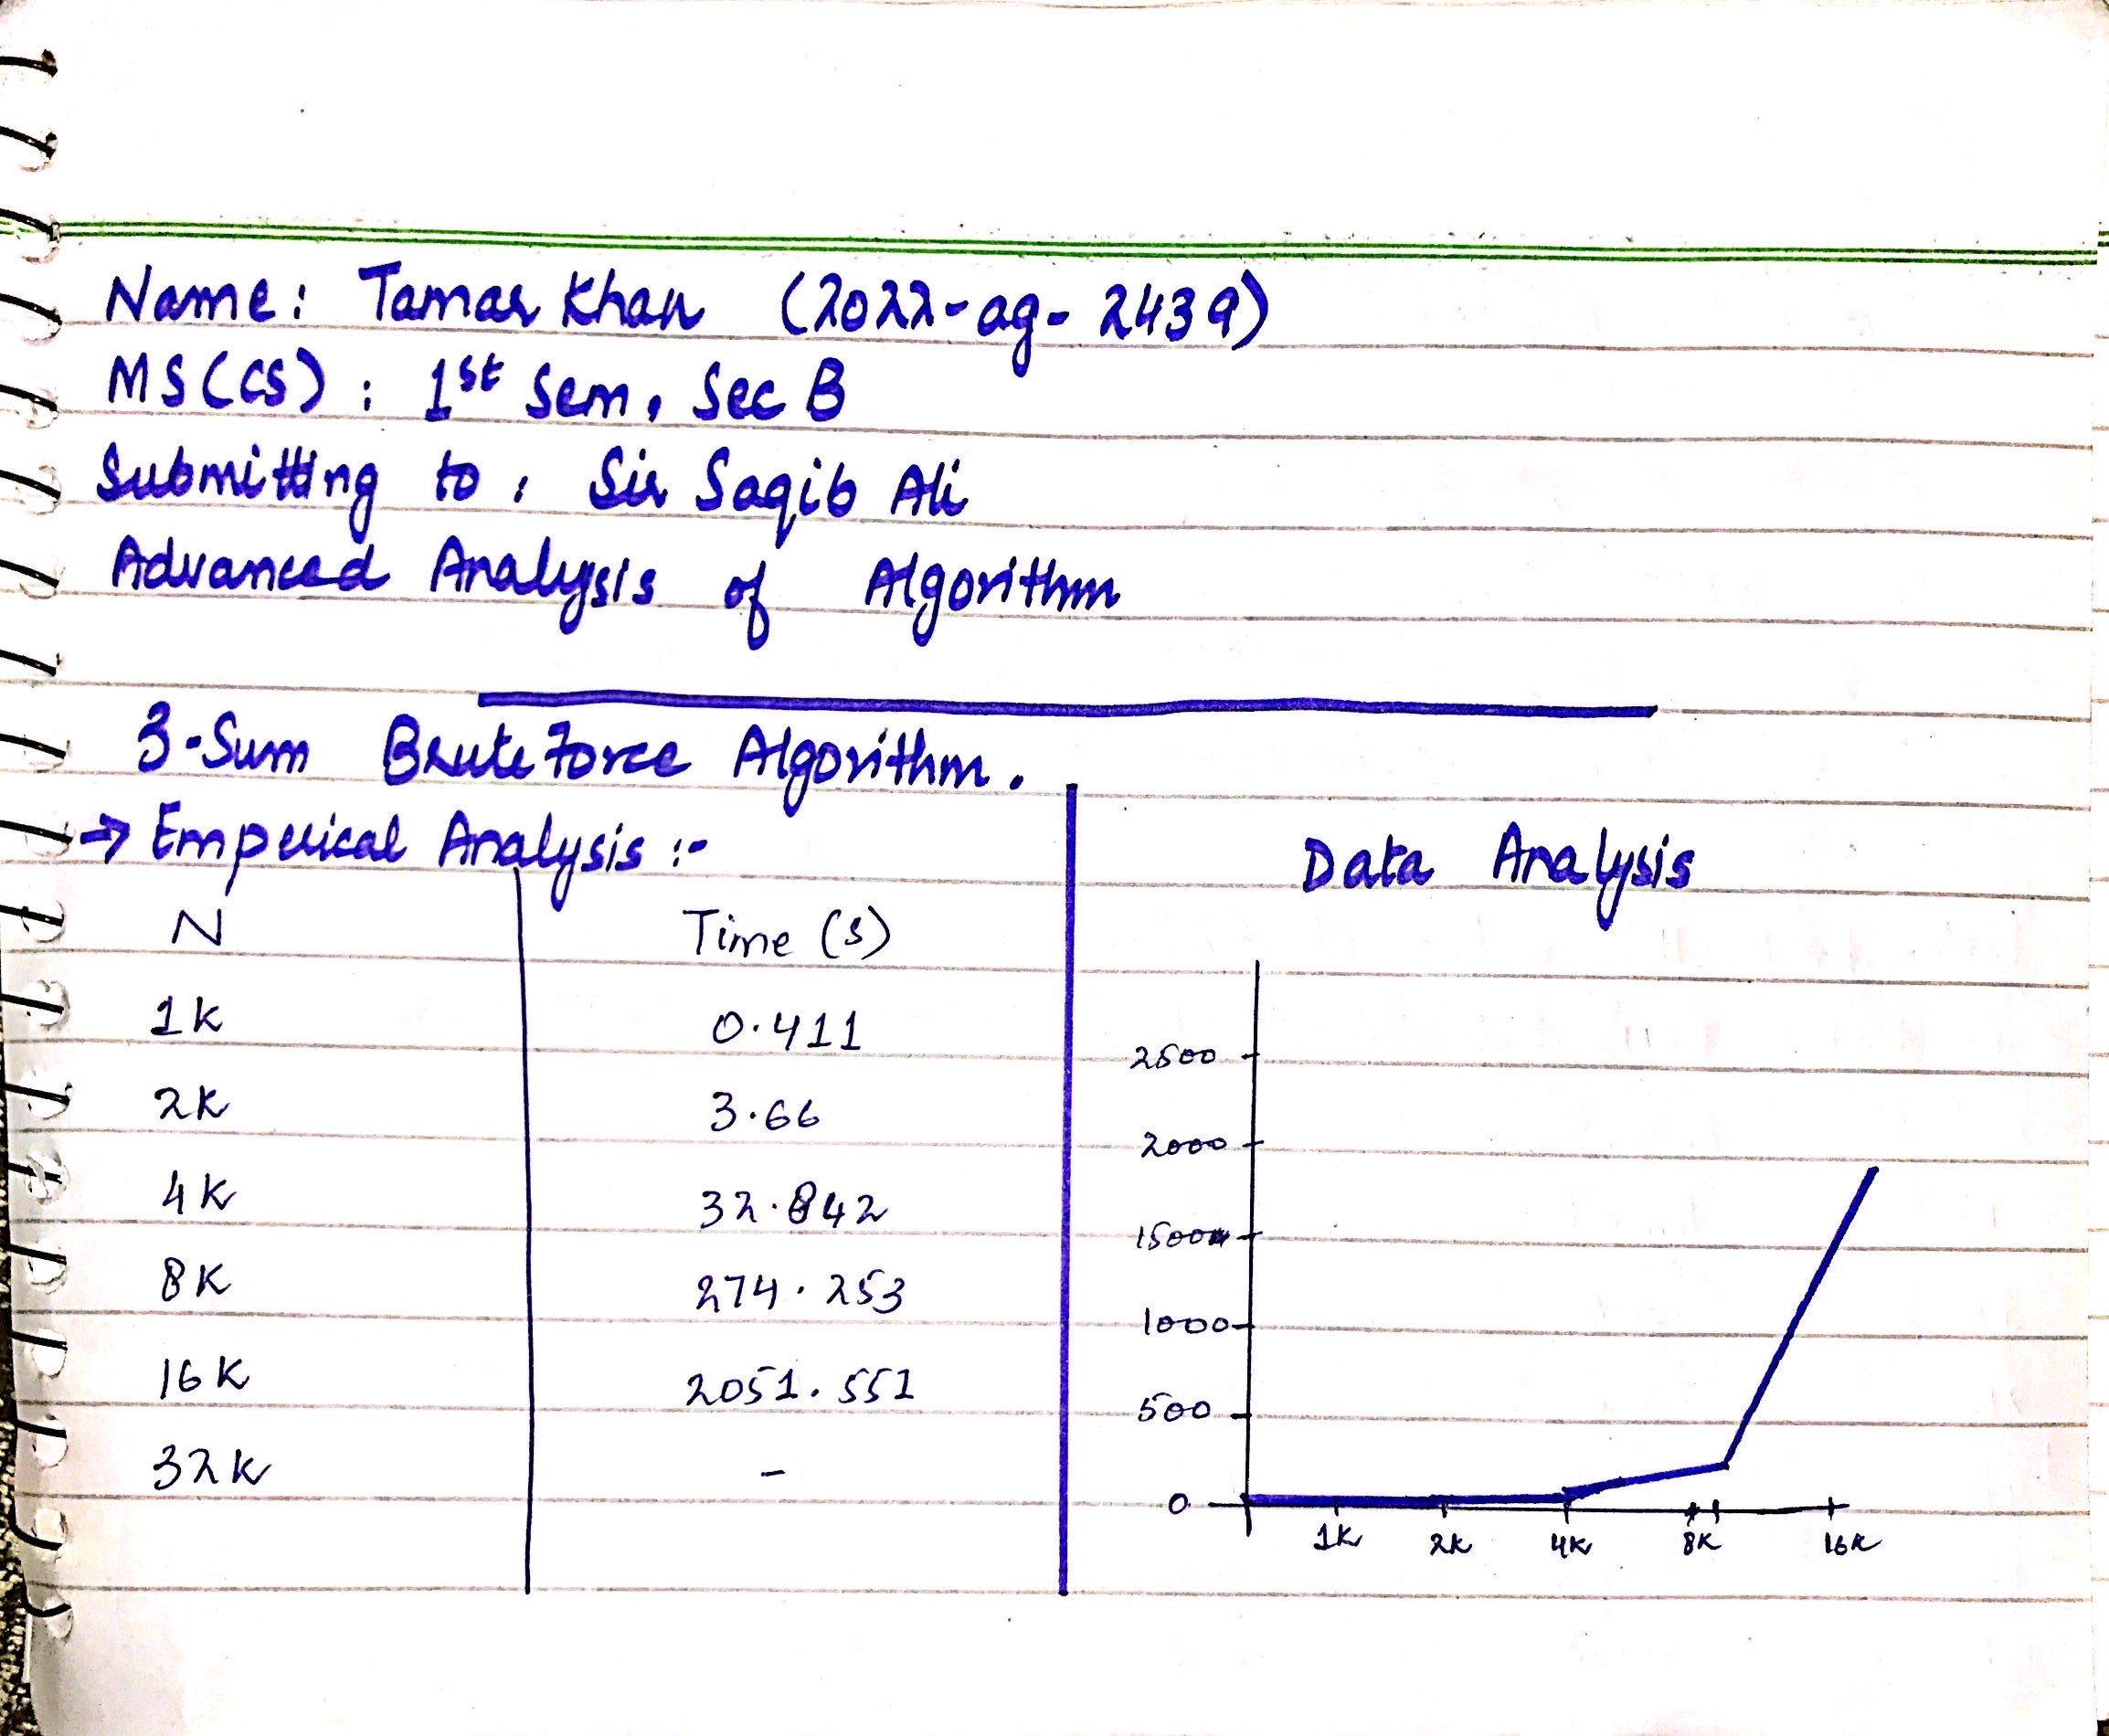 Name: Tamar Khan (2022-ag-2439)
MS(CS): 1st Sem, Sec B
Submitting to: Sir Saqib Ali
Advanced Analysis of Algorithm
3-Sum Brute Force Algorithm.
→ Emperical Analysis :-
N Time (s)
1K 0.411
2K 3.66
4K 32.842
8K 274.253
16K 2051.551
32K -
Data Analysis
2500
2000
1500
1000
500
0
1K 2K 4K 8K 16K